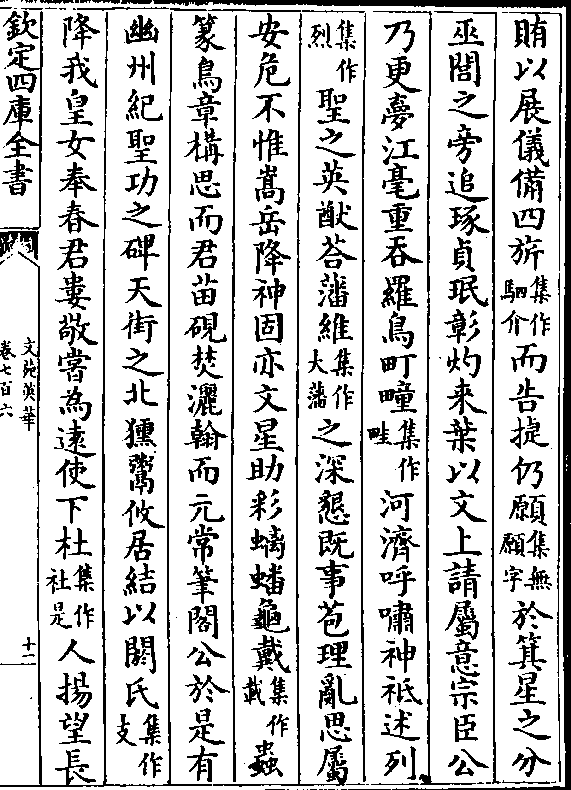 賄以展儀備四旂集作駟介而告捷仍願集無願字於箕星之分
巫閭之旁追琢貞珉彰灼來葉以文上請屬意宗臣公
乃更夢江毫重吞羅鳥町疃集作畦河濟呼嘯神祇述列
集作烈聖之英猷荅藩維集作大藩之深懇既事苞理亂思屬
安危不惟嵩岳降神固亦文星助彩螭蟠龜戴集作載蟲
篆鳥章構思而君苗硯焚灑翰而元常筆閣公於是有
幽州紀聖功之碑天街之北獯鬻攸居結以閼氏集作支
降我皇女奉春君婁敬嘗為遠使下杜集作社是人揚望長
欽定四庫全書
文苑英華
卷七百六
十二